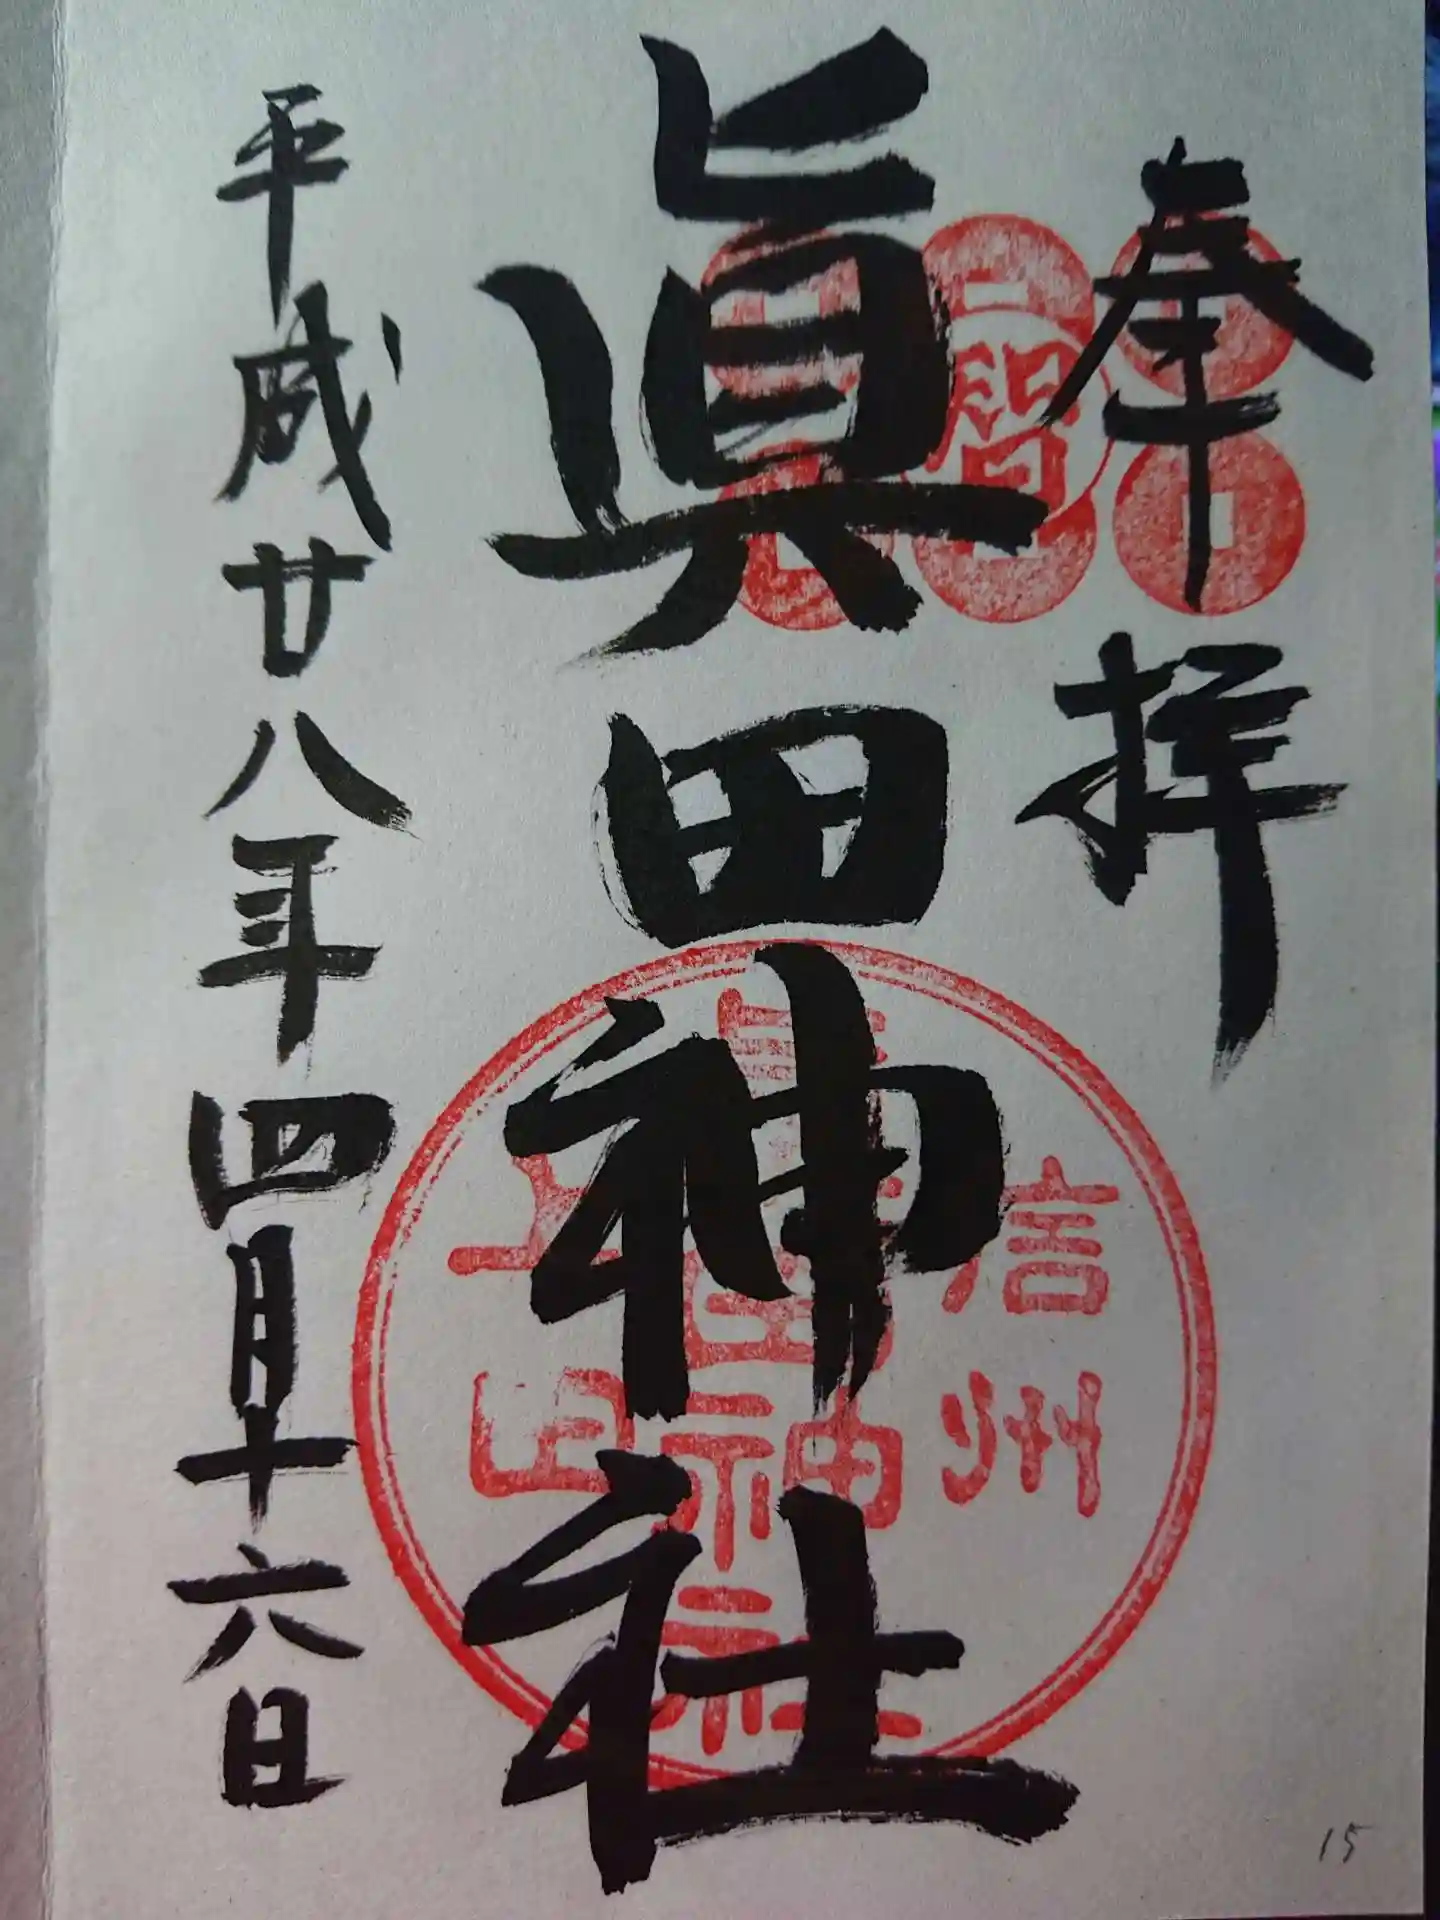 奉拝
眞田神社
平成廿八年四月十六日
智
信州
眞田神社
上田
15